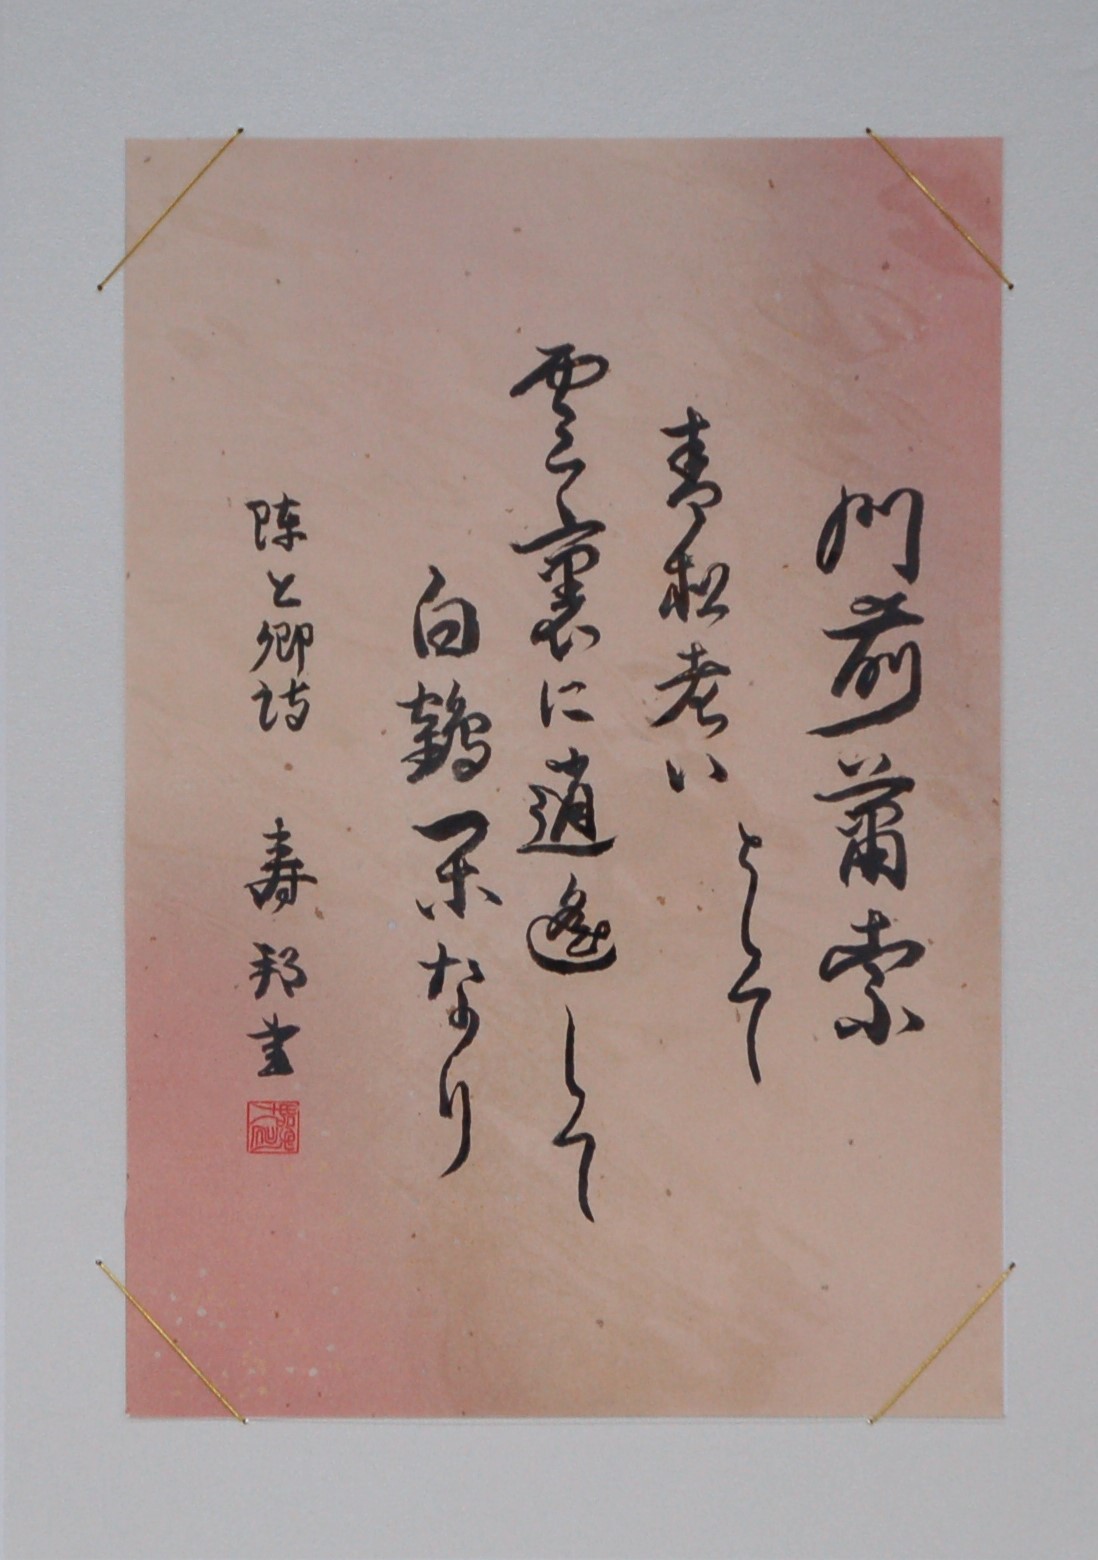 門前蕭索
として
青松老い
雲裏に逍遙して
白鶴閑なり
陳上卿詩 寿邦書